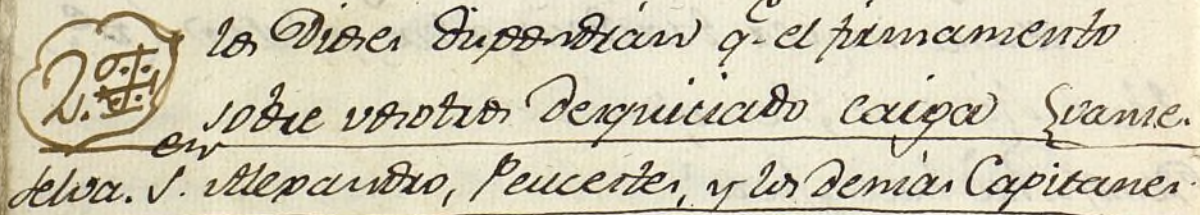 los Dioses suspendian q.e el firmamento
2.
sobre vosotros desquiciado caiga {vanse.
en
selva. S. Alexandro, Peucestes, y los demas Capitanes